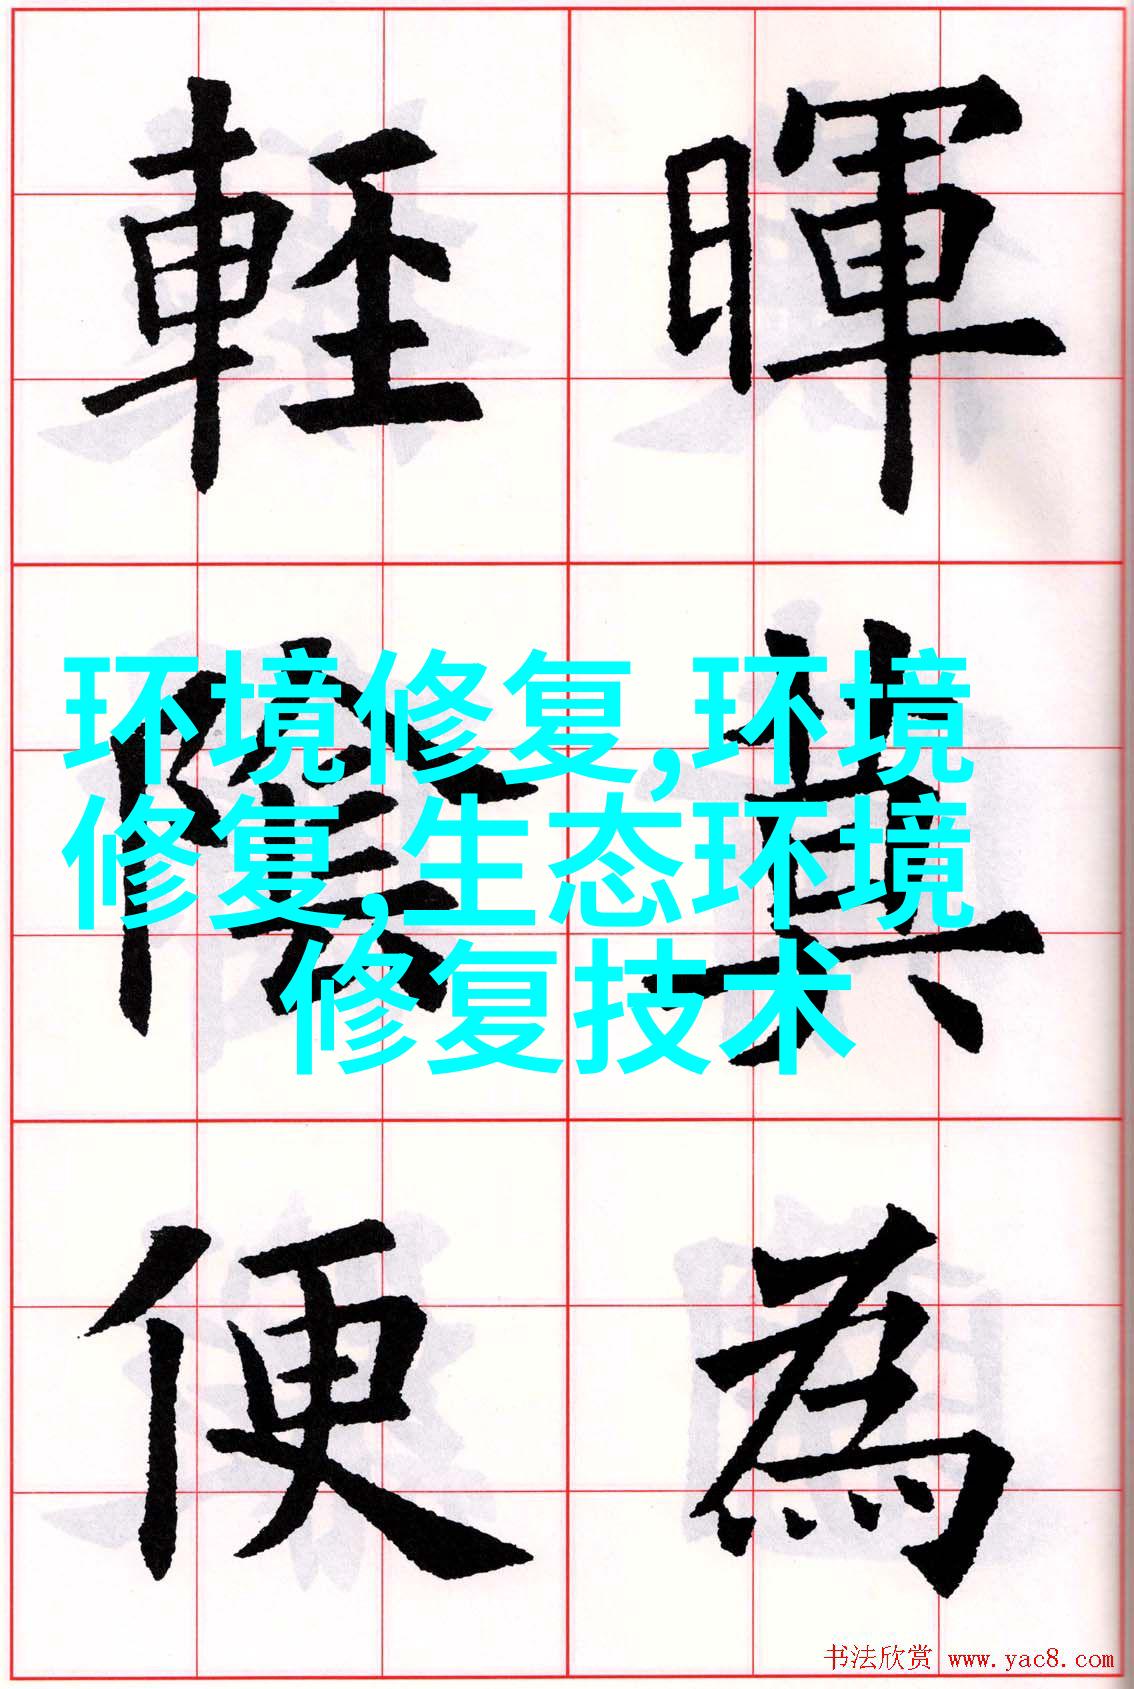 暉莫為
輕陰便
环境修复,环境
修复,生态环境
修复技术
书法欣赏 www.yac8.com